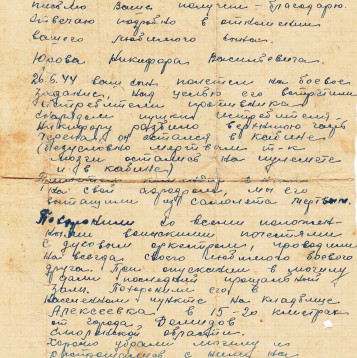 письмо Ваше получил – благодарю.
Отвечаю подробно в отношении
вашего любимого сына.
Юрова Никифора Васильевича.
26.6.44 ваш сын полетел на боевое
задание, над целью его встретили
истребители противника
снарядом пушки истребителя
Никифору разбило верхнюю часть
черепа, он остался в кабине
(безусловно мертвым т-к
мозги остались на пулемете
и в кабине)
на свой аэродром, мы его
вытащили из самолета мертвым.
Похоронили со всеми положен-
ными воинскими почестями
с духовым оркестром, проводили
на всегда своего любимого боевого
друга. При опускании в могилу
дали последний прощальный
залп. Похоронили его в
населенном пункте на кладбище
Алексеевка, в 15-20 километрах
от города Демидов
Смоленской области.
Хорошо убрали могилу и